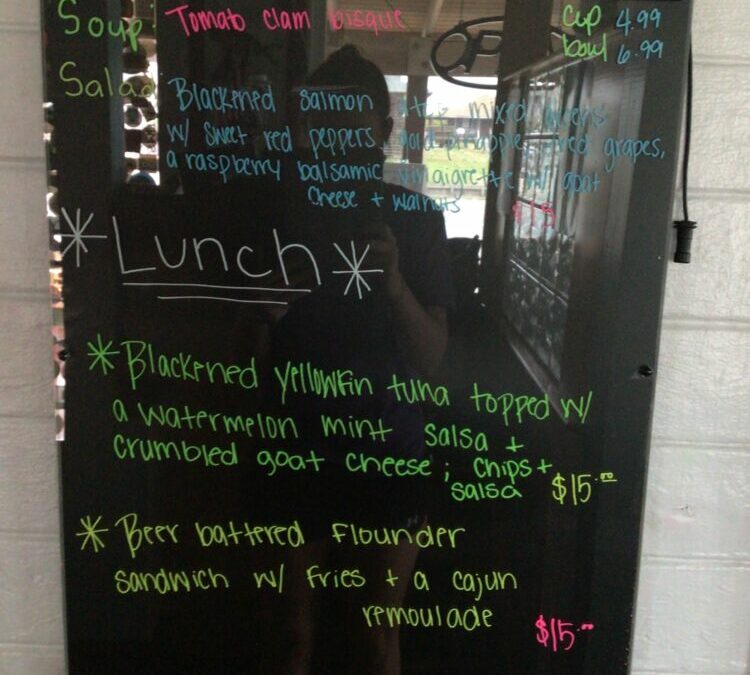 Soup: Tomato clam bisque cup 4.99
bowl 6.99
OPEN
Salad
Blackened salmon atop mixed greens
w/ sweet red peppers, gold pineapple, red grapes,
a raspberry balsamic vinaigrette w/ goat
cheese + walnuts
*Lunch*
*Blackened yellowfin tuna topped w/
a watermelon mint salsa +
crumbled goat cheese; chips +
salsa $15.00
*Beer battered flounder
sandwich w/ fries + a cajun
remoulade
$15.00